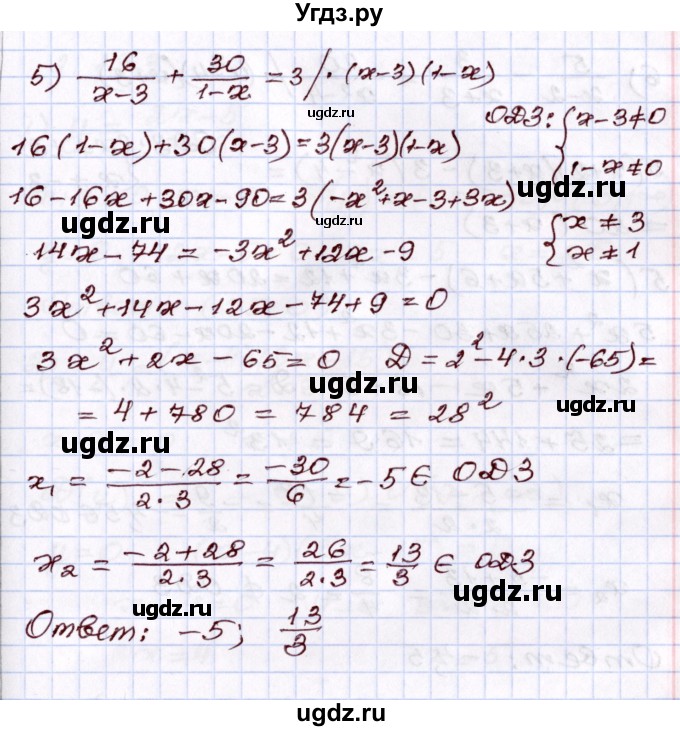 Угдз.ру
5) 16/(x-3) + 30/(1-x) = 3 /· (x-3)(1-x)
ugdz.ru
16(1-x)+30(x-3)=3(x-3)(1-x)
ОДЗ: { x-3≠0
1-x≠0
16-16x+30x-90=3(-x²+x-3+3x)
ugdz.ru ugdz.ru ugdz.ru
{ x≠3
x≠1
14x-74=-3x²+12x-9
3x²+14x-12x-74+9=0
ugdz.ru
3x²+2x-65=0 Д=2²-4·3·(-65)=
ugdz.ru
=4+780=784=28²
ugdz.ru ugdz.ru
x₁ = (-2-28)/(2·3) = -30/6 = -5 ∈ ОДЗ
ugdz.ru
x₂ = (-2+28)/(2·3) = 26/(2·3) = 13/3 ∈ ОДЗ
ugdz.ru ugdz.ru ugdz.ru
Ответ: -5; 13/3
ugdz.ru
ugdz.ru